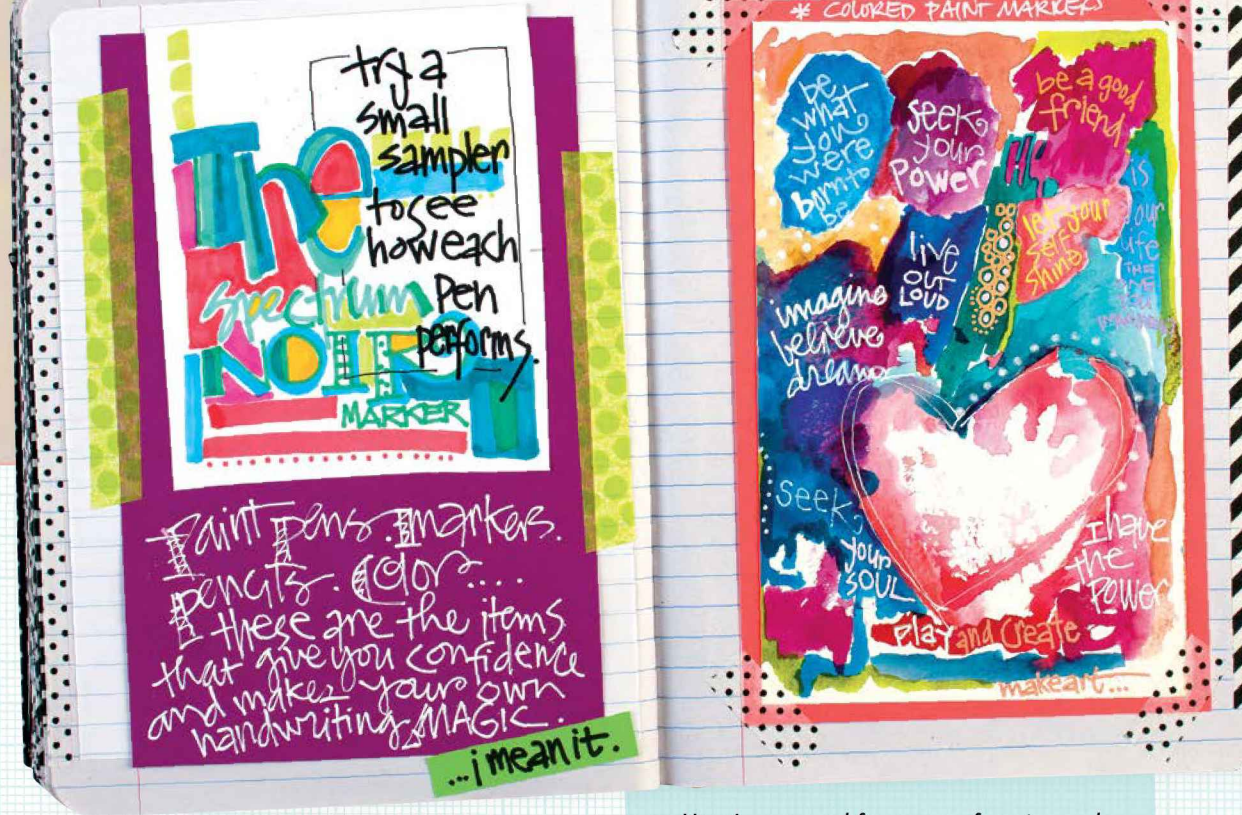 try a
small
sampler
to see
how each
pen
performs.
The
spectrum
NOIR
MARKER
Paint pens. markers.
pencils. Color....
these are the items
that give you confidence
and makes your own
handwriting MAGIC.
...i mean it.
* COLORED PAINT MARKERS
be
what
you
were
born to
be
seek
your
Power
be a good
friend
Hi.
let your
self
shine
is
our
life
THE
ONE
YOU
live
OUT
LOUD
imagine
believe
dream
Seek
your
SOUL
I have
the
Power
Play and Create
make art...